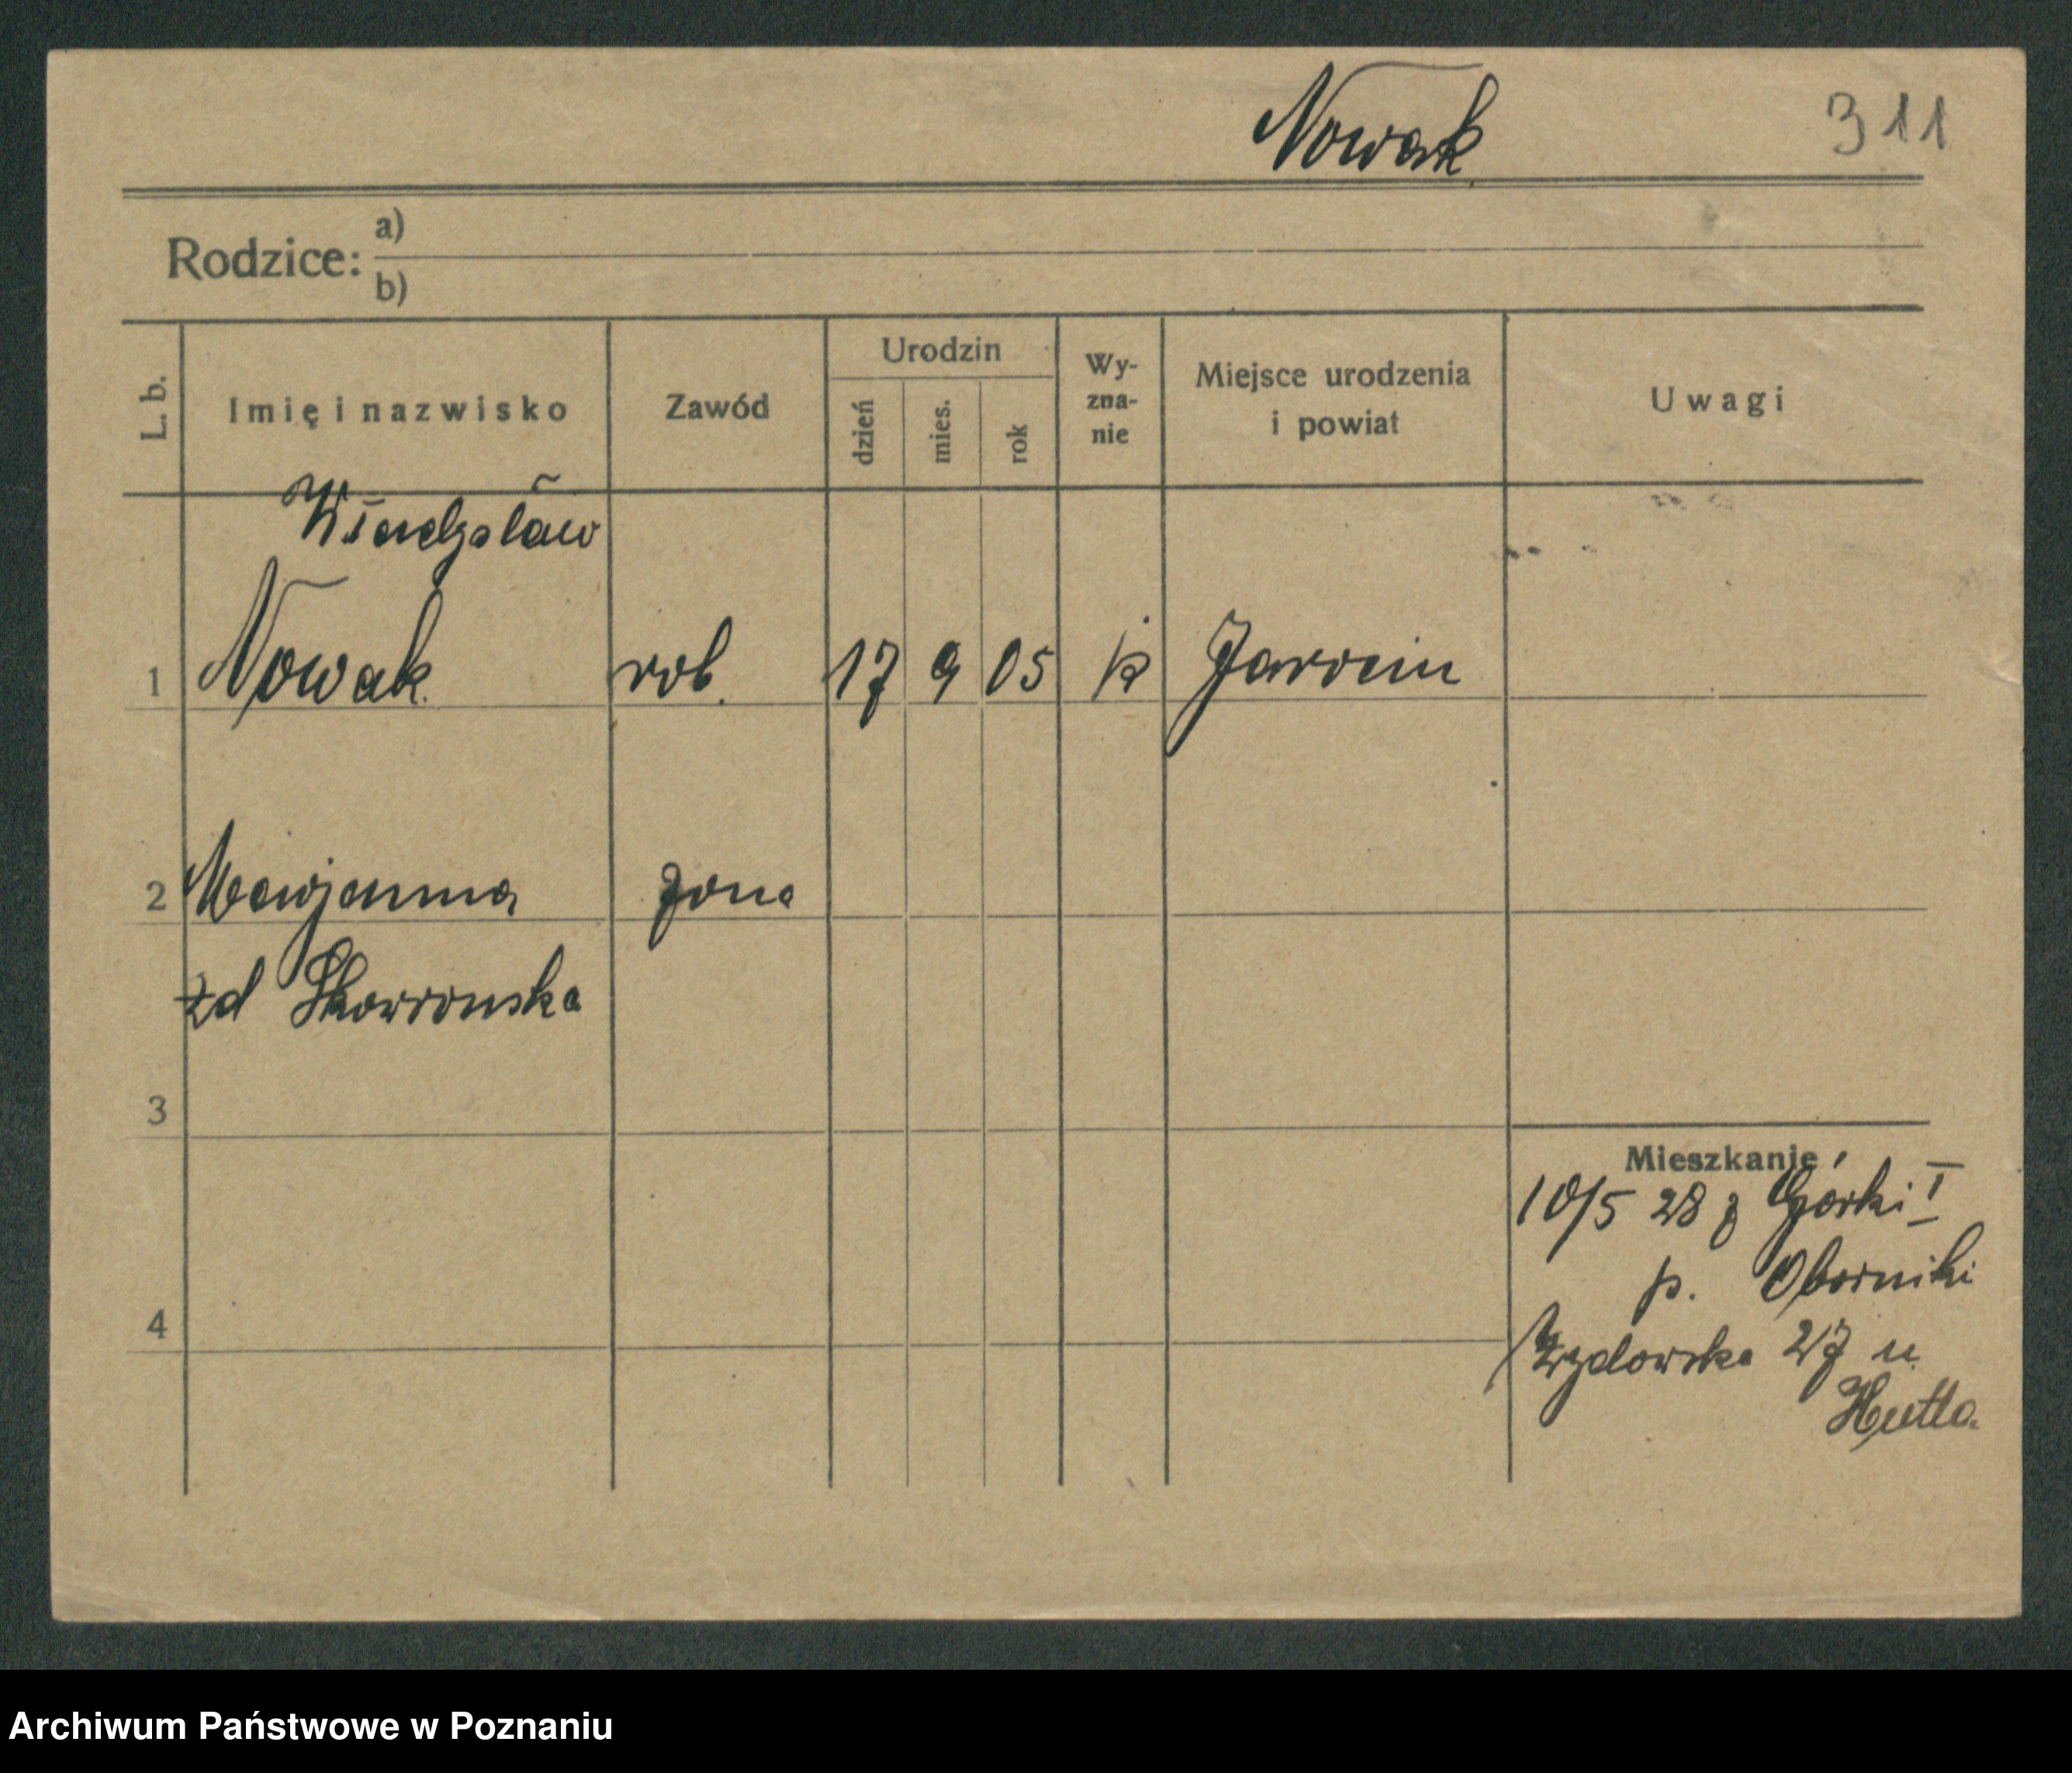 Nowak 311
Rodzice: a)
b)
L. b. Imię i nazwisko Zawód Urodzin dzień mies. rok Wy-zna-nie Miejsce urodzenia i powiat Uwagi
Władysław
1 Nowak rob. 17 9 05 k Jarocin
2 Marjanna żona
zd Skowronska
3
Mieszkanie
10/5 28 z Górki I
p. Oborniki
4
Żydowska 27 u
Hutta
Archiwum Państwowe w Poznaniu